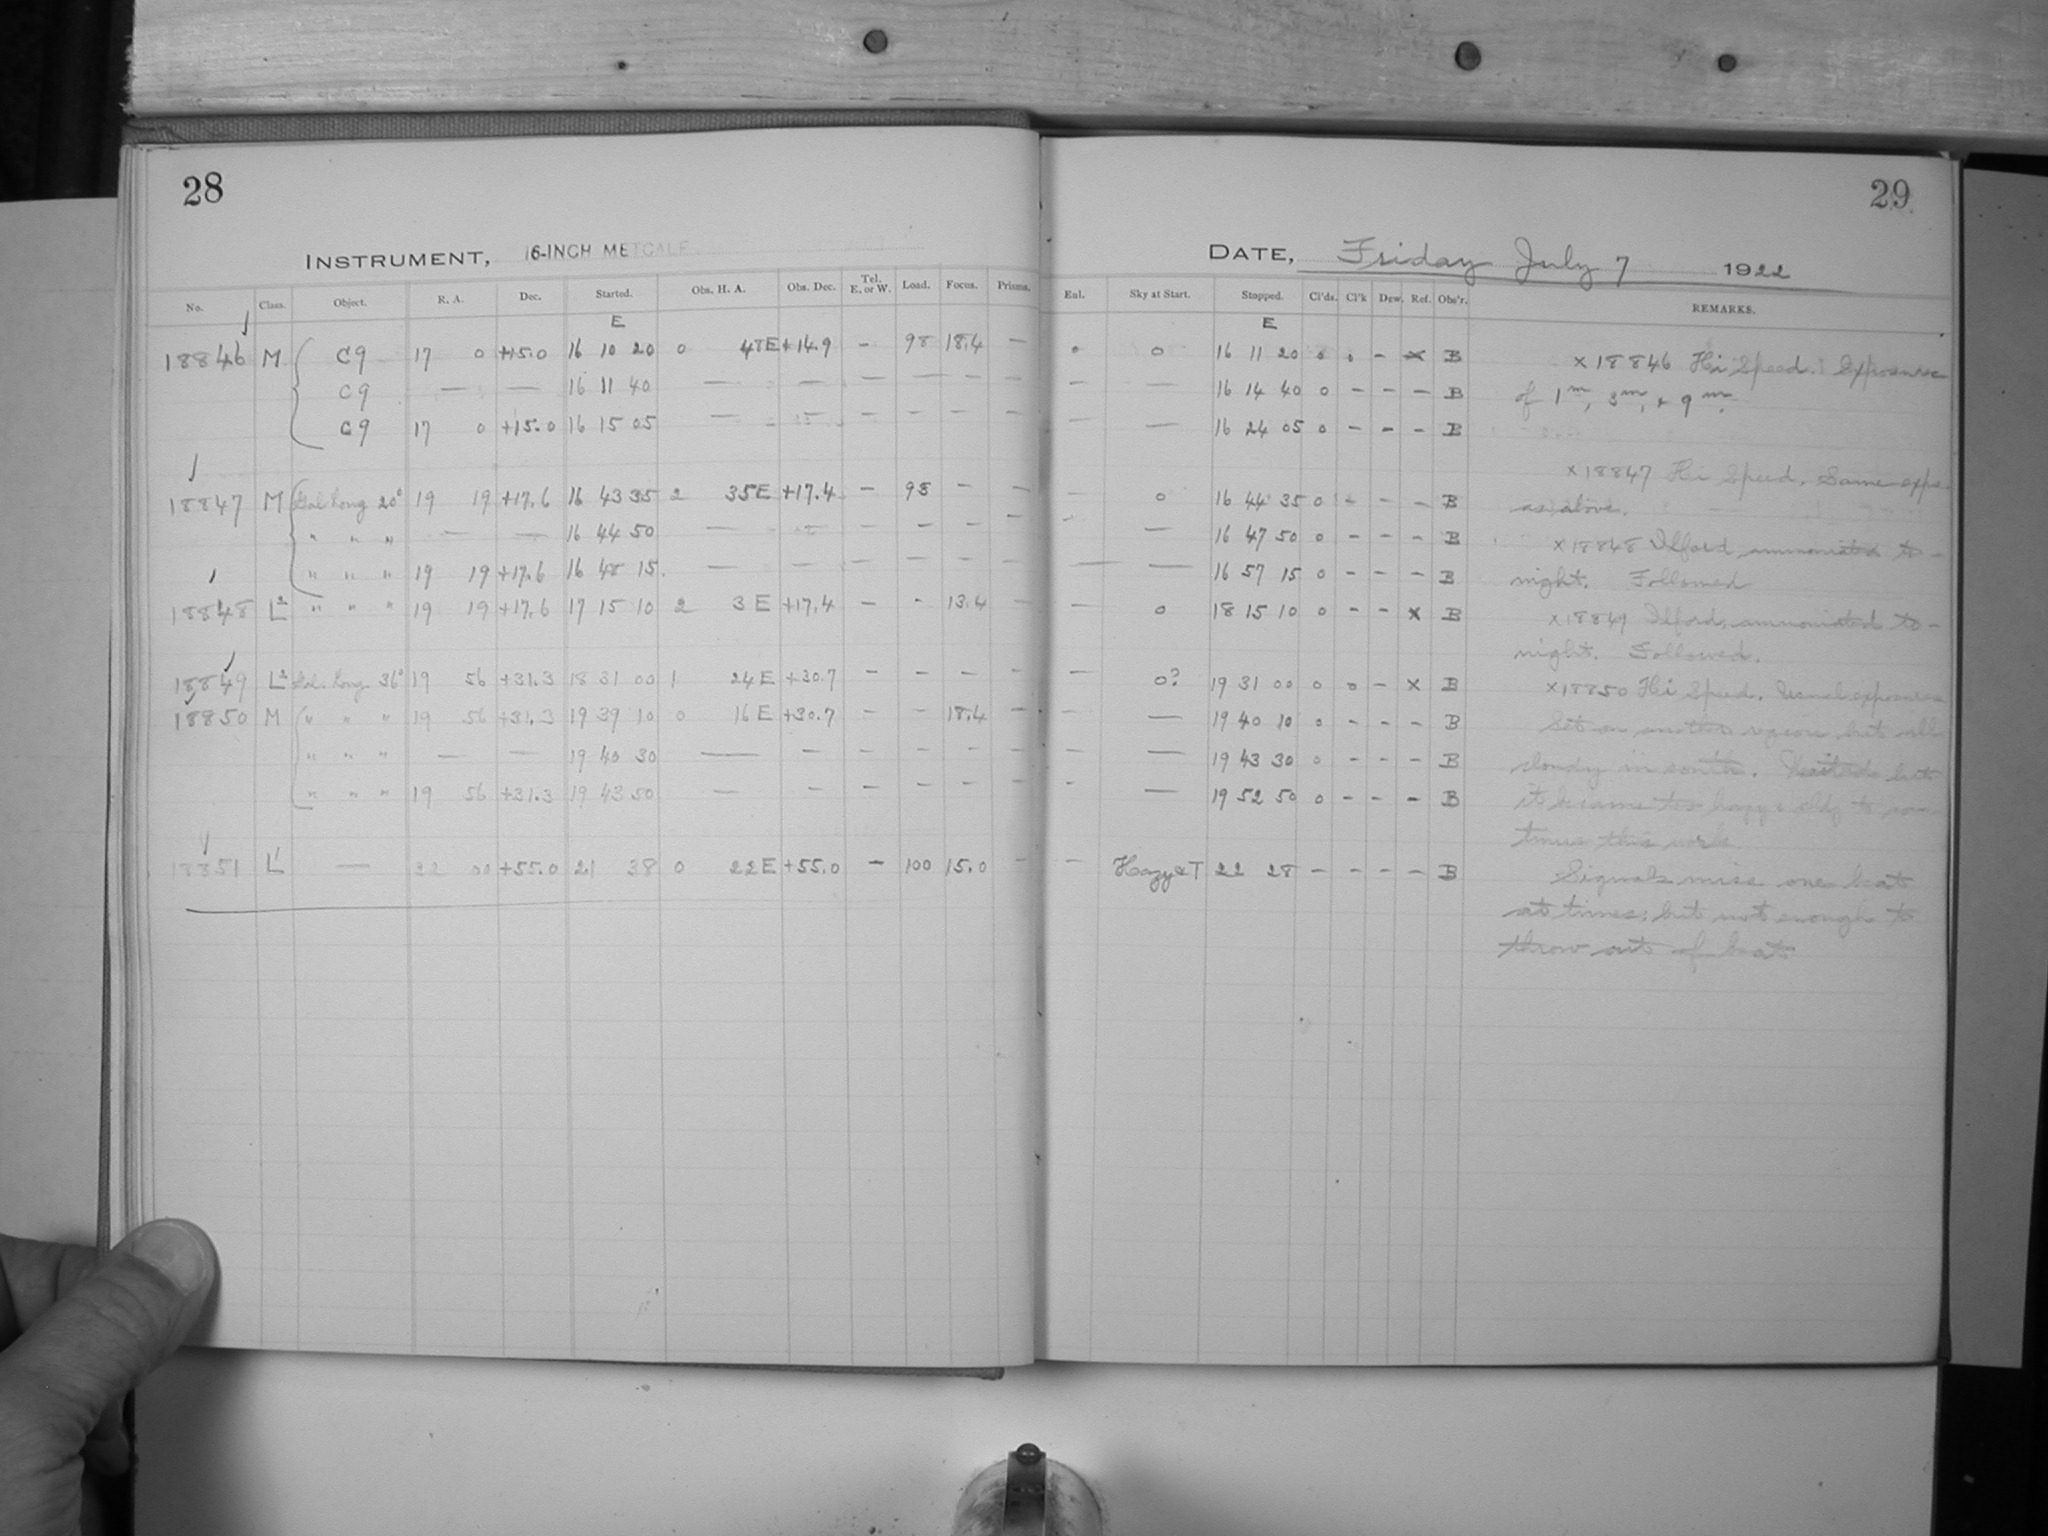 28
INSTRUMENT, 16-INCH METCALF
No. Class. Object. R. A. Dec. Started. Obs. H. A. Obs. Dec. Tel. E. or W. Load. Focus. Prisms.
E
18846 M C9 17 0 +15.0 16 10 20 0 48E +14.9 - 98 18.4 -
C9 — — 16 11 40 — — — — — —
C9 17 0 +15.0 16 15 05 — — — — —
18847 M Gal Long 20° 19 19 +17.6 16 43 35 2 35E +17.4 - 98 - -
" " " — — 16 44 50 — — — — — —
" " " 19 19 +17.6 16 48 15 — — — — — —
18848 L2 " " " 19 19 +17.6 17 15 10 2 3 E +17.4 - - 13.4 -
18849 L2 Gal. Long. 36° 19 56 +31.3 18 31 00 1 24 E +30.7 - - - -
18850 M " " " 19 56 +31.3 19 39 10 0 16 E +30.7 - - 18.4 -
" " " — — 19 40 30 — — — — — —
" " " 19 56 +31.3 19 43 50 — — — — — —
18851 L1 — 22 00 +55.0 21 38 0 22E +55.0 - 100 15.0 -
29
DATE, Friday July 7 1922
Enl. Sky at Start. Stopped. Cl'ds. Cl'k Dew. Ref. Obs'r. REMARKS.
E
0 0 16 11 20 0 0 - x B
- — 16 14 40 0 - - - B
— 16 24 05 0 - - - B
— 0 16 44 35 0 - - - B
- — 16 47 50 0 - - - B
— — 16 57 15 0 - - - B
— 0 18 15 10 0 - - x B
— 0? 19 31 00 0 0 - x B
- — 19 40 10 0 - - - B
- — 19 43 30 0 - - - B
- — 19 52 50 0 - - - B
- Hazy & T 22 28 - - - - B
x 18846 Hi Speed. Exposures
of 1m, 3m, + 9m.
x 18847 Hi Speed. Same expo.
as above.
x 18848 Ilford, ammoniated to-
night. Followed
x 18849 Ilford, ammoniated to-
night. Followed.
x 18850 Hi Speed. Usual exposures
Set on another region but all
cloudy in south. Waited but
it became too hazy & cldy to con-
tinue this work.
Signals miss one beat
at times; but not enough to
throw out of beat